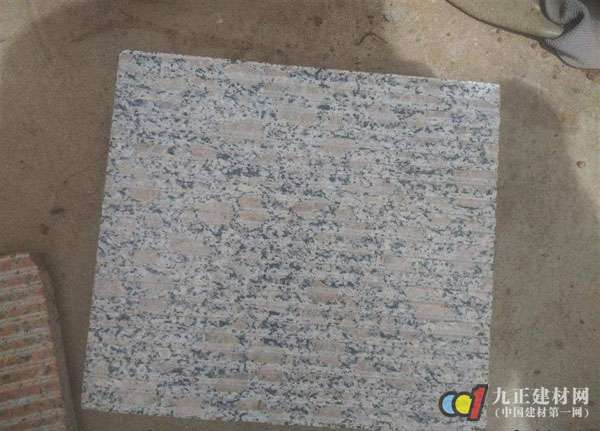 九正建材网
(中国建材第一网)